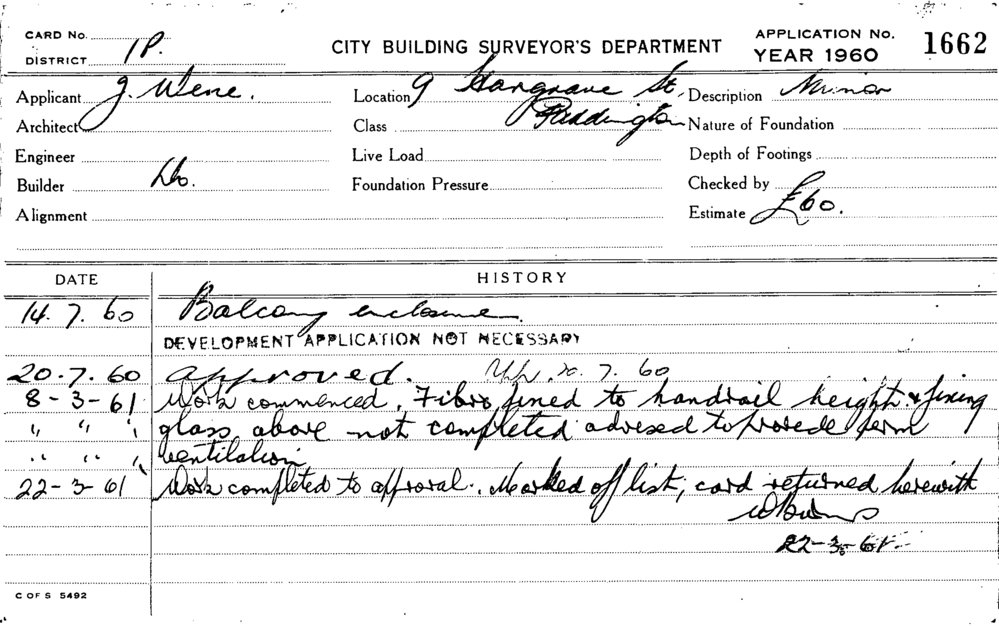 CARD No.
DISTRICT 1P.
CITY BUILDING SURVEYOR'S DEPARTMENT
APPLICATION No. 1662
YEAR 1960
Applicant J. Wene.
Location 9 Hargrave St. Paddington
Description Minor
Architect
Class
Nature of Foundation
Engineer
Live Load
Depth of Footings
Builder Do.
Foundation Pressure
Checked by
Alignment
Estimate £60.
DATE HISTORY
14. 7. 60 Balcony enclosure
DEVELOPMENT APPLICATION NOT NECESSARY
20-7. 60 approved. 20. 7. 60
8-3-61 Work commenced. Fibro fixed to handrail height & fixing
" " " glass above not completed advised to provide perm
" " " ventilation
22-3-61 Work completed to approval. Marked off list, card returned herewith
22-3-61
C OF S 5492